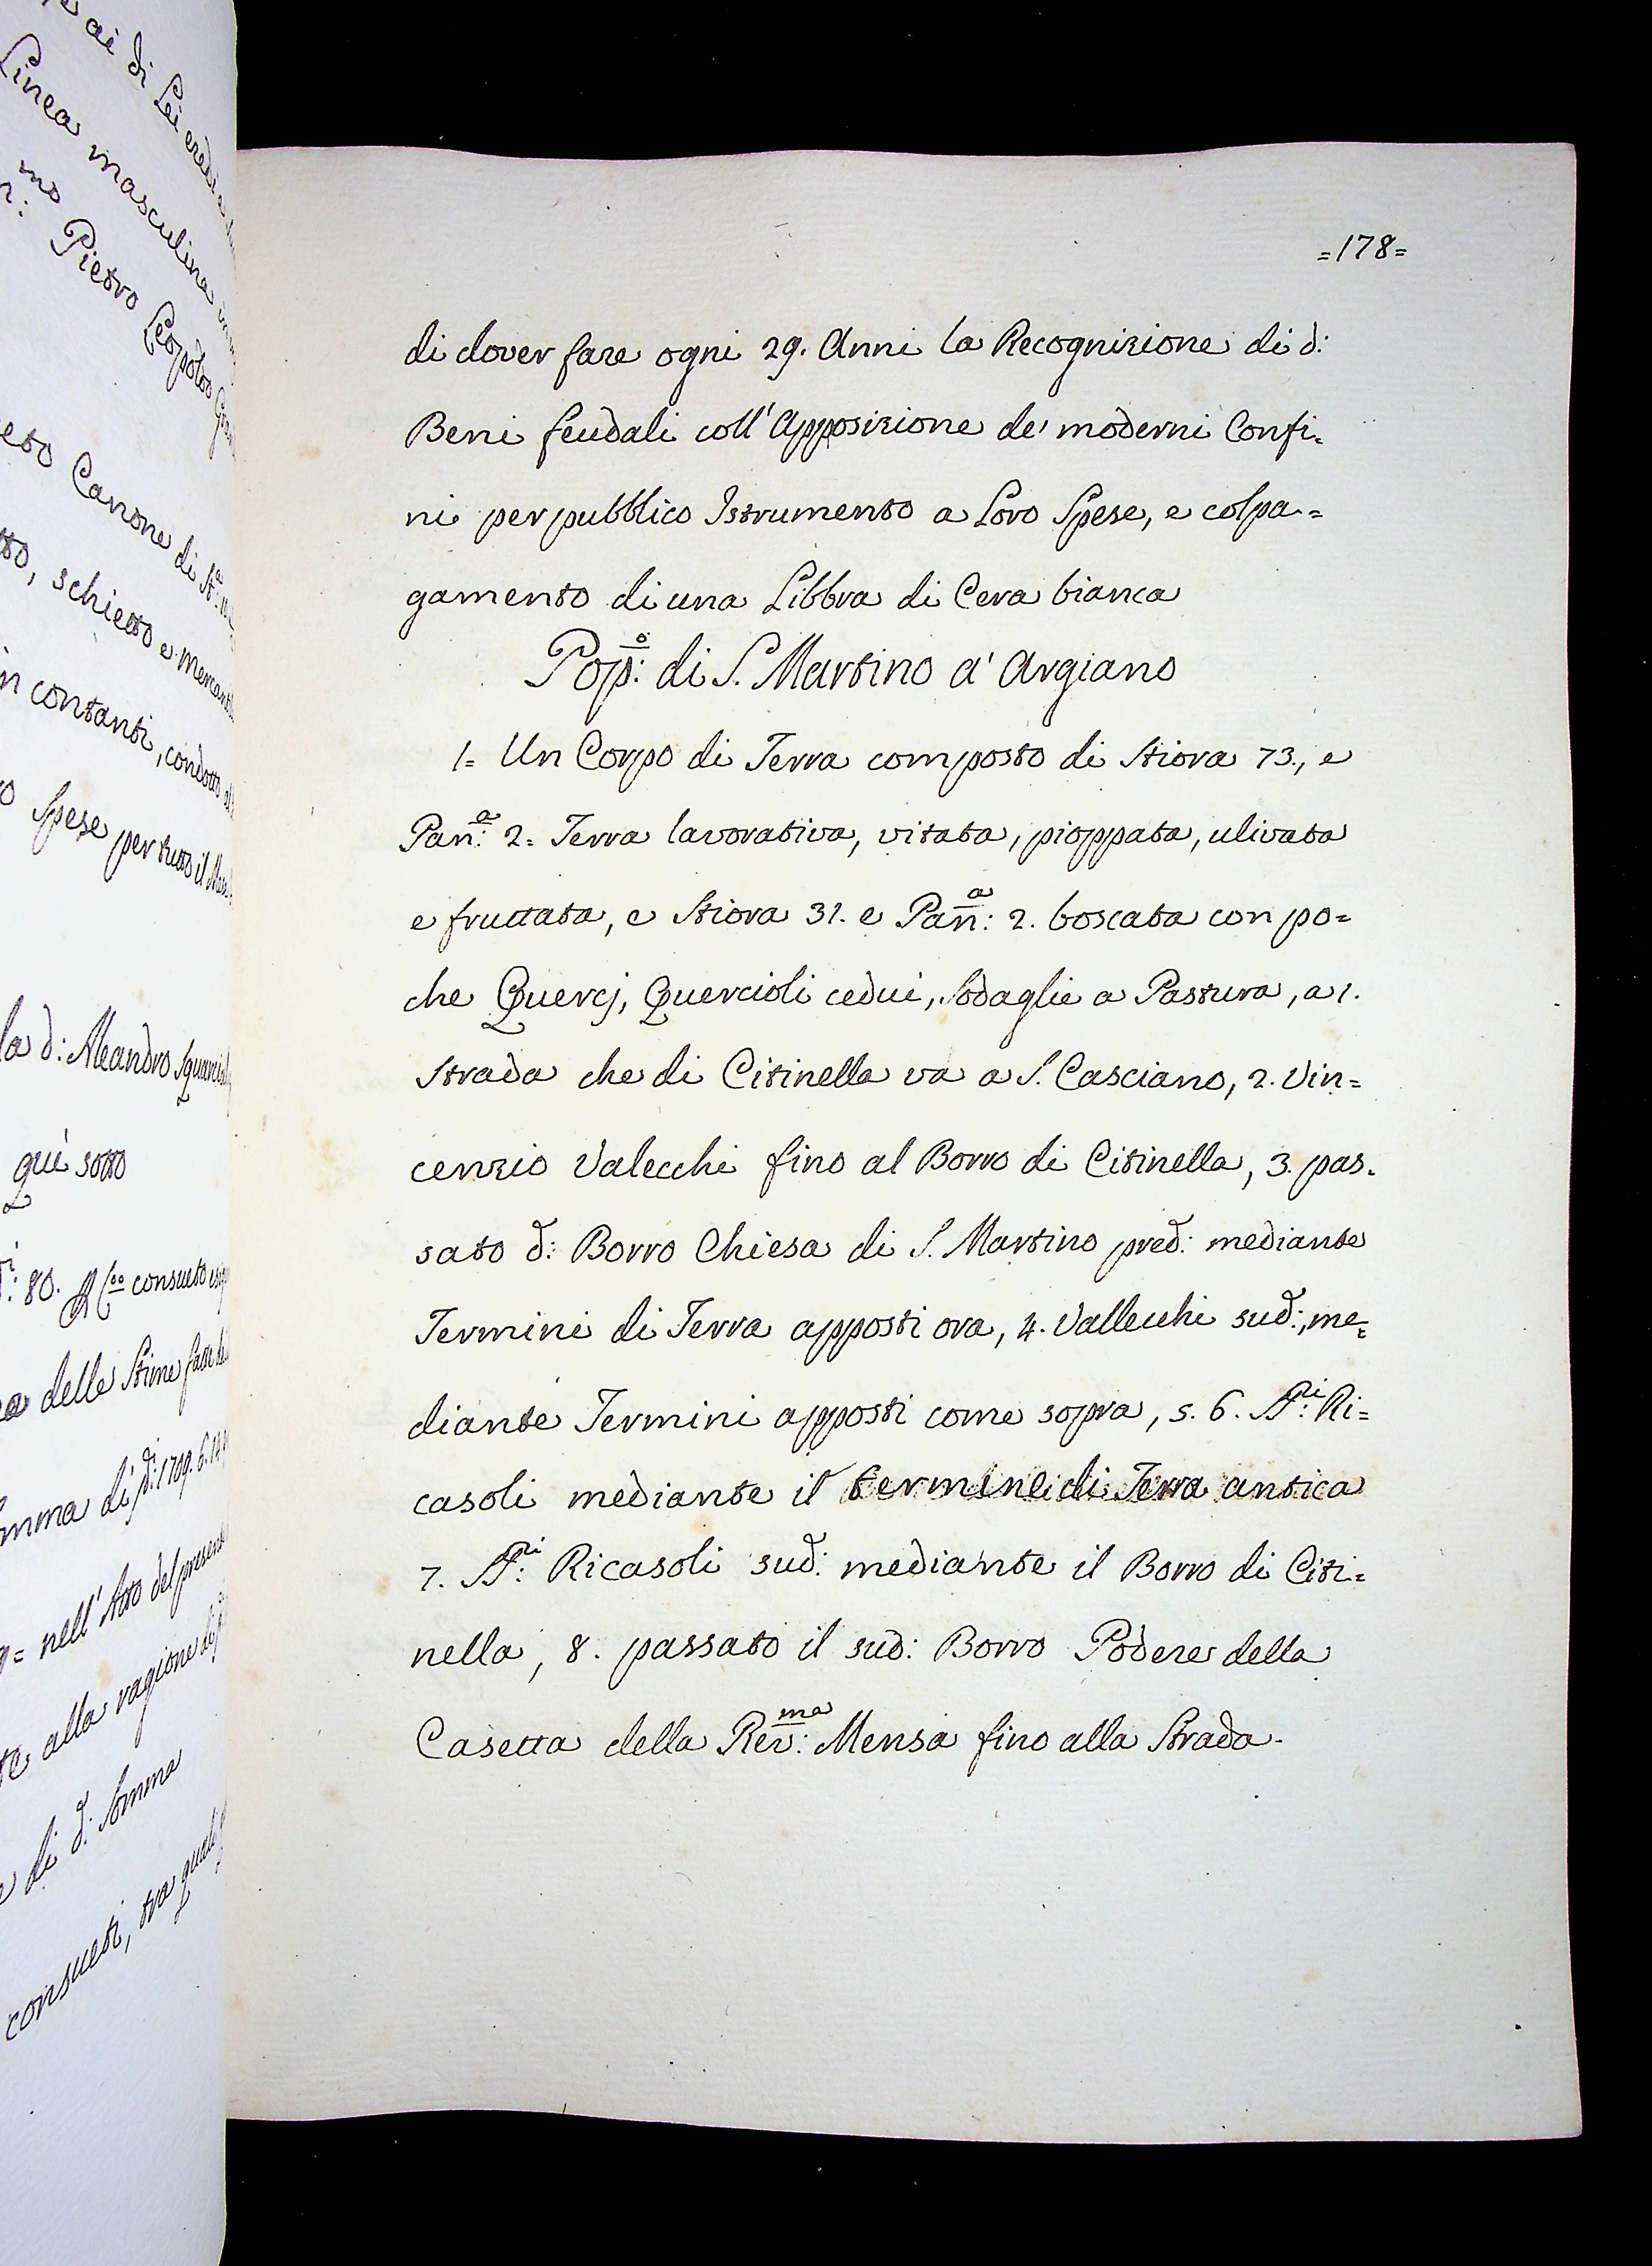 =178=
di dover fare ogni 29. Anni la Recognizione di d:
Beni feudali coll'Apposizione de' moderni Confi=
ni per pubblico Istrumento a Loro Spese, e col pa=
gamento di una Libbra di Cera bianca
Pop:º di S. Martino a' Argiano
1= Un Corpo di Terra composto di Stiora 73., e
Pan:ª 2= Terra lavorativa, vitata, pioppata, ulivata
e fruttata, e Stiora 31. e Pan:ª 2. boscata con po=
che Quercj, Quercioli cedui, Sodaglie a Pastura, a 1.
Strada che di Citinella va a S. Casciano, 2. Vin=
cenzio Valecchi fino al Borro di Citinella, 3. pas=
sato d: Borro Chiesa di S. Martino pred: mediante
Termini di Terra apposti ora, 4. Vallecchi sud:, me=
diante Termini apposti come sopra, 5. 6. Ri=
casoli mediante il termine di Terra antica
7. Ricasoli sud: mediante il Borro di Citi=
nella, 8. passato il sud: Borro Podere della
Casetta della Rev:ma Mensa fino alla Strada.
ai di Lei
Linea masculina
mo Pietro Leopoldo
Canone di
schietto e Mercantil
in contanti, condotto
Spese per tutto il Mese
la d: Aleandro
qui sotto
80. consueto
delle Stime fatte
di 1709. 6.
= nell'Atto del presente
alla ragione di
di d: Somma
consueti, tra quali